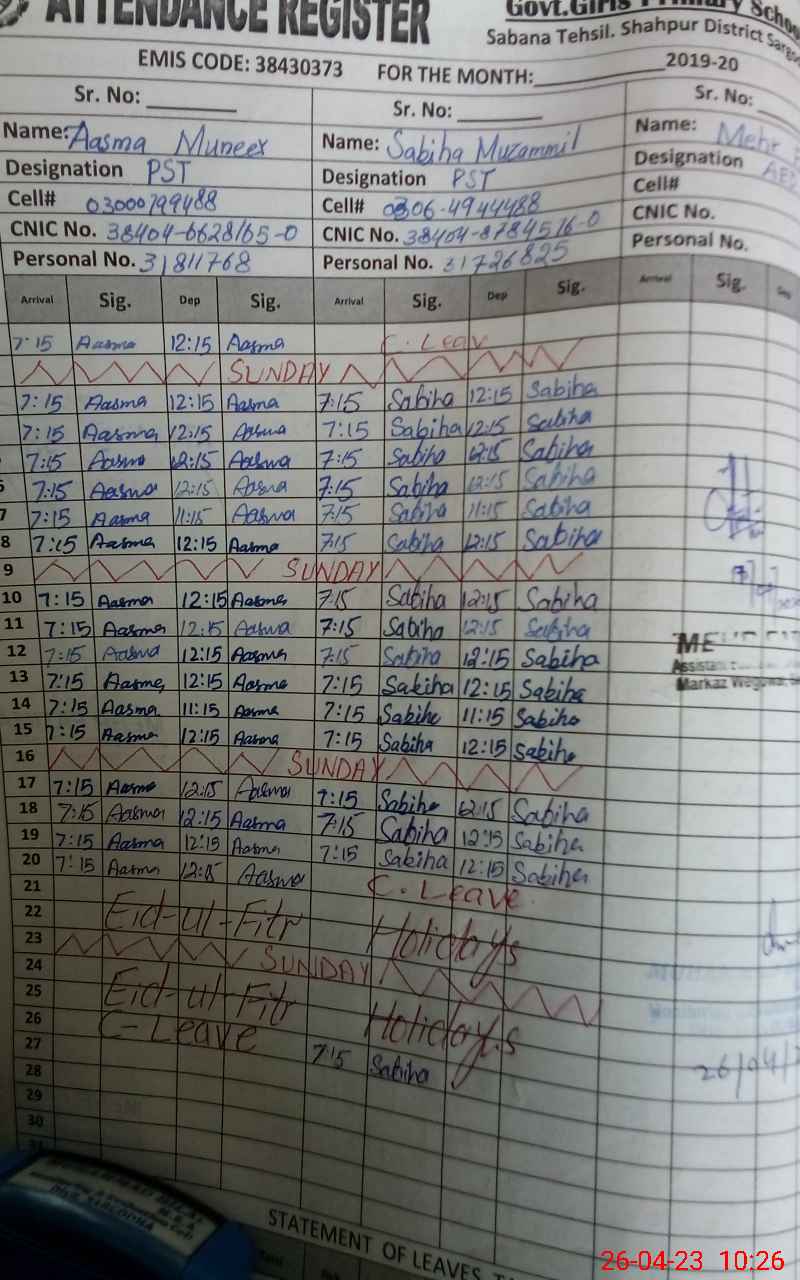 ATTENDANCE REGISTER
Govt.Girls Primary School
Sabana Tehsil. Shahpur District
EMIS CODE: 38430373 FOR THE MONTH: 2019-20
Sr. No: Sr. No: Sr. No:
Name: Aasma Muneer Name: Sabiha Muzammil Name: Mehr
Designation PST Designation PST Designation
Cell# 03000799488 Cell# 0306-4944488 Cell#
CNIC No. 38404-6628165-0 CNIC No. 38404-8784516-0 CNIC No.
Personal No. 31811768 Personal No. 31726825 Personal No.
Arrival Sig. Dep Sig. Arrival Sig. Dep Sig. Arrival Sig. Dep
7:15 Aasma 12:15 Aasma C. Leav
SUNDAY
7:15 Aasma 12:15 Aasma 7:15 Sabiha 12:15 Sabiha
7:15 Aasma 12:15 Aasma 7:15 Sabiha 12:15 Sabiha
7:15 Aasma 12:15 Aasma 7:15 Sabiha 12:15 Sabiha
7:15 Aasma 12:15 Aasma 7:15 Sabiha 12:15 Sabiha
7 7:15 Aasma 11:15 Aasma 7:15 Sabiha 11:15 Sabiha
8 7:15 Aasma 12:15 Aasma 7:15 Sabiha 12:15 Sabiha
9 SUNDAY
10 7:15 Aasma 12:15 Aasma 7:15 Sabiha 12:15 Sabiha
11 7:15 Aasma 12:15 Aasma 7:15 Sabiha 12:15 Sabiha
12 7:15 Aasma 12:15 Aasma 7:15 Sabiha 12:15 Sabiha
13 7:15 Aasma 12:15 Aasma 7:15 Sabiha 12:15 Sabiha
14 7:15 Aasma 11:15 Aasma 7:15 Sabiha 11:15 Sabiha
15 7:15 Aasma 12:15 Aasma 7:15 Sabiha 12:15 Sabiha
16 SUNDAY
17 7:15 Aasma 12:15 Aasma 7:15 Sabiha 12:15 Sabiha
18 7:15 Aasma 12:15 Aasma 7:15 Sabiha 12:15 Sabiha
19 7:15 Aasma 12:15 Aasma 7:15 Sabiha 12:15 Sabiha
20 7:15 Aasma 12:15 Aasma C. Leave
21
22 Eid-ul-Fitr Holidays
23 SUNDAY
24
25 Eid-ul-Fitr Holidays
26 C-Leave 7:15 Sabiha
27
28
29
30
31
Markaz
26/04/
STATEMENT OF LEAVES
26-04-23 10:26